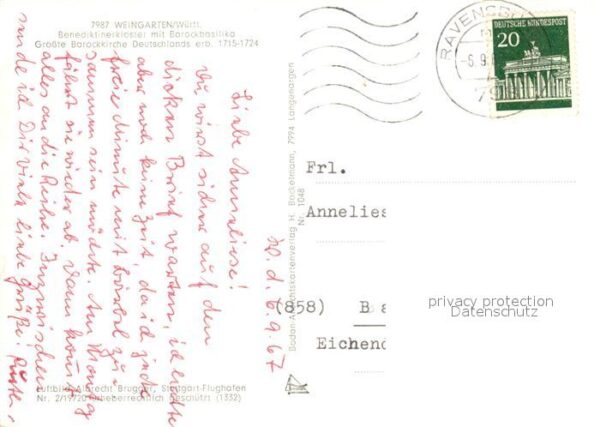 7987 WEINGARTEN/Württ.
Benediktinerkloster mit Barockbasilika
Größte Barockkirche Deutschlands erb. 1715-1724
W. d. 6.9.67
Liebe Anneliese!
Du wirst sicher auf den
dicken Brief warten, ich hatte
aber noch keine Zeit, da ich jede
freie Minute mit Bärbel zu-
sammen sein möchte. Am Montag
fährt sie wieder ab. Dann kommst
alles an die Reihe. Inzwischen
sende ich Dir viele liebe Grüße!
Luftbild Albrecht Brugger, Stuttgart-Flughafen
Nr. 2/19720 Urheberrechtlich geschützt (1332)
Boden-Ansichtskartenverlag H. Brockelmann, 7994 Langenargen
Nr. 1048
RAVENSBU
-6.9.
DEUTSCHE BUNDESPOST
20
Frl.
Annelies
(858) Ba
Eichend
privacy protection
Datenschutz